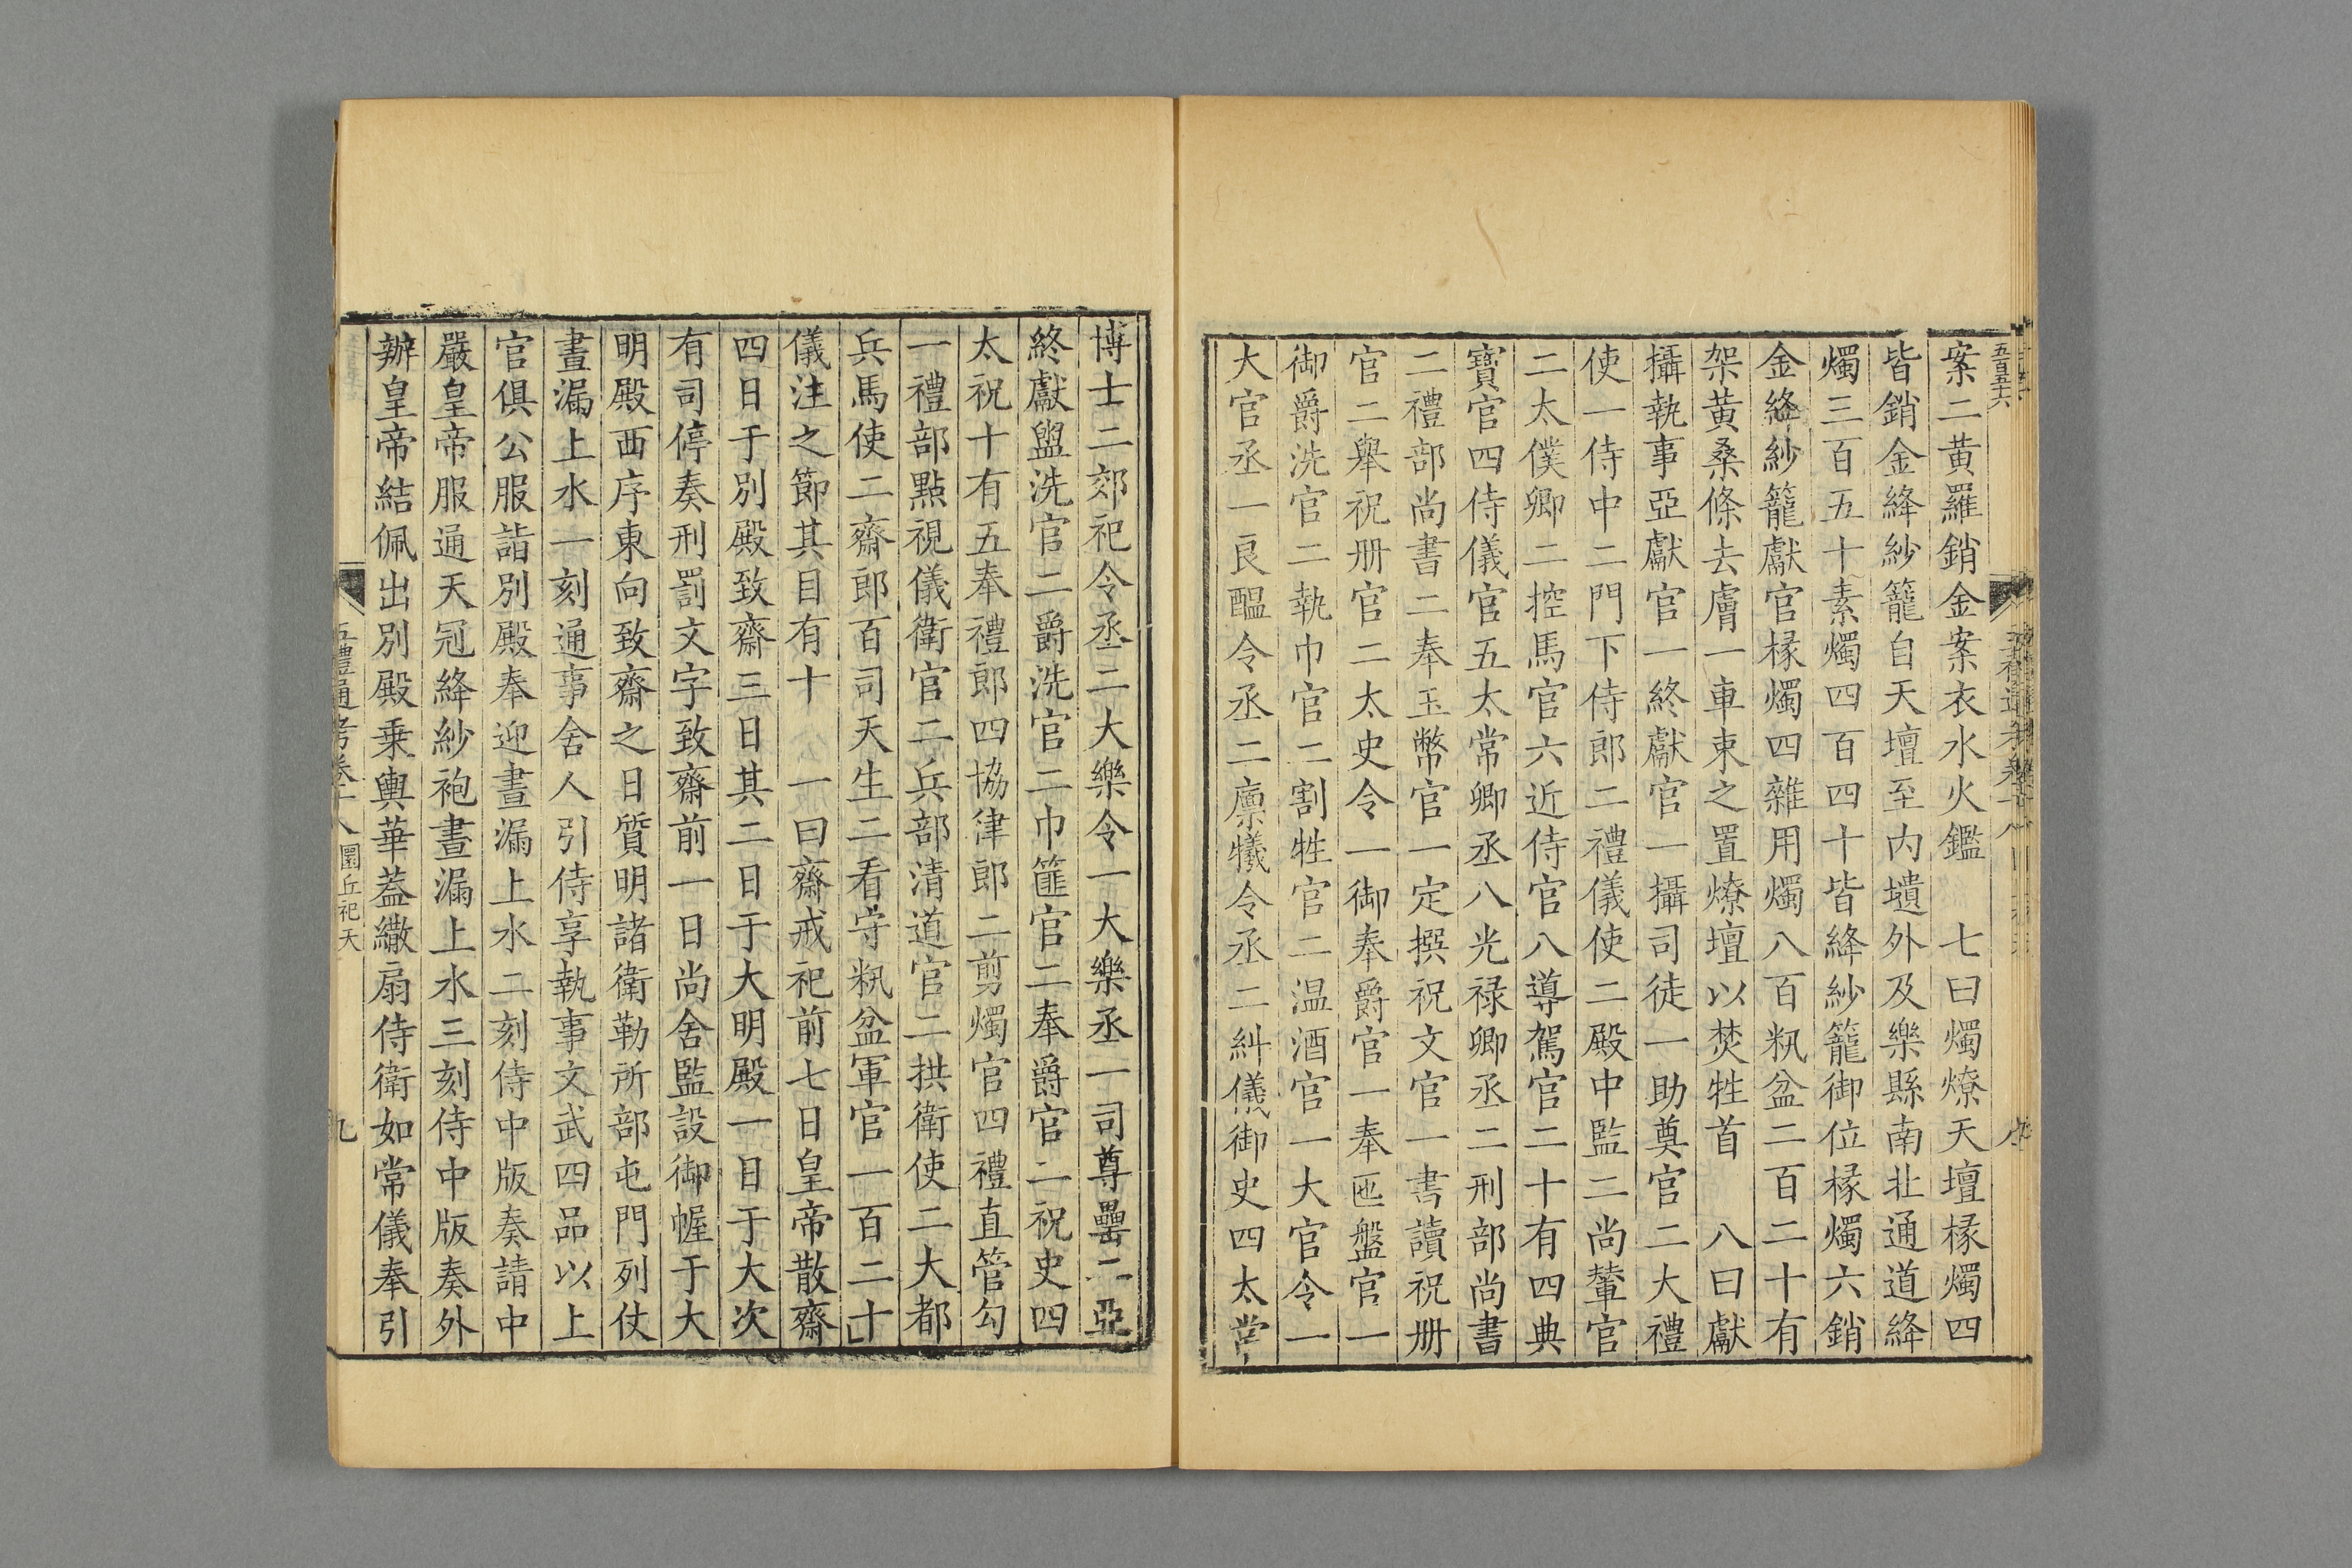 案二黄羅銷金案衣水火鑑　七曰燭燎天壇椽燭四
皆銷金絳紗籠自天壇至内壝外及樂縣南北通道絳
燭三百五十素燭四百四十皆絳紗籠御位椽燭六銷
金絳紗籠獻官椽燭四雜用燭八百籸盆二百二十有
架黄桑條去膚一車束之置燎壇以焚牲首　八曰獻
攝執事亞獻官一終獻官一攝司徒一助奠官二大禮
使一侍中二門下侍郎二禮儀使二殿中監二尚輦官
二太僕卿二控馬官六近侍官八導駕官二十有四典
寶官四侍儀官五太常卿丞八光禄卿丞二刑部尚書
二禮部尚書二奉玉幣官一定撰祝文官一書讀祝册
官二舉祝册官二太史令一御奉爵官一奉匜盤官一
御爵洗官二執巾官二割牲官二温酒官一大官令一
大官丞一良醖令丞二廩犧令丞二糾儀御史四太常
博士二郊祀令丞二大樂令一大樂丞一司尊罍二亞
終獻盥洗官二爵洗官二巾篚官二奉爵官二祝史四
太祝十有五奉禮郎四協律郎二剪燭官四禮直管勾
一禮部點視儀衛官二兵部清道官二拱衛使二大都
兵馬使二齋郎百司天生二看守籸盆軍官一百二十
儀注之節其目有十　一曰齋戒祀前七日皇帝散齋
四日于別殿致齋三日其二日于大明殿一日于大次
有司停奏刑罰文字致齋前一日尚舍監設御幄于大
明殿西序東向致齋之日質明諸衛勒所部屯門列仗
晝漏上水一刻通事舍人引侍享執事文武四品以上
官俱公服詣別殿奉迎晝漏上水二刻侍中版奏請中
嚴皇帝服通天冠絳紗袍晝漏上水三刻侍中版奏外
辦皇帝結佩出別殿乘輿華葢繖扇侍衛如常儀奉引
五禮通考卷十八圜丘祀天
九